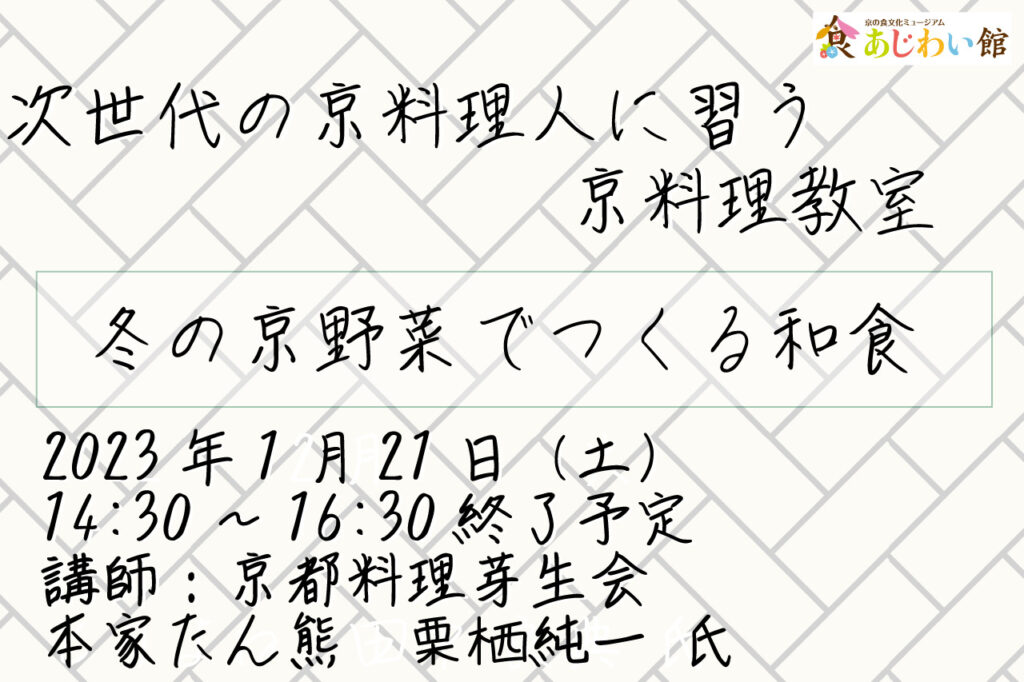 京の食文化ミュージアム
食 あじわい館
次世代の京料理人に習う
京料理教室
冬の京野菜でつくる和食
2023年1月21日（土）
14:30～16:30終了予定
講師：京都料理芽生会
本家たん熊 栗栖純一 氏